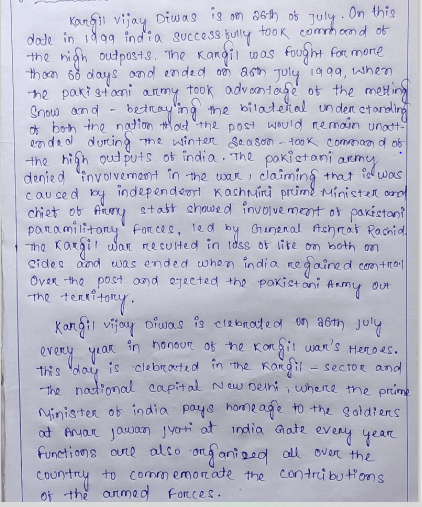 Kargil vijay Diwas is on 26th of July. On this
date in 1999 india successfully took command of
the high outposts. The Kargil was fought for more
than 60 days and ended on 26th July 1999, when
the pakistani army took advantage of the melting
snow and - betraying the bilateral understanding
of both the nation that the post would remain unatt-
ended during the winter season - took command of
the high outputs of india. The pakistani army
denied involvement in the war, claiming that is was
caused by independent Kashmiri prime Minister and
chief of Army staff showed involvement of pakistani
paramilitary forces, led by General Ashrat Rashid.
The Kargil war resulted in loss of life on both on
sides and was ended when india regained controil
over the post and ejected the pakistani Army out
the territory.
Kargil vijay Diwas is clebrated on 26th july
every year in honour of the Kargil war's Heroes.
this day is clebrarted in the Kargil - sector and
the national capital New Delhi, where the prime
Minister of india pays homeage to the soldiers
at Amar jawan jyoti at india Gate every year
functions are also organized all over the
country to commemorate the contributions
of the armed forces.